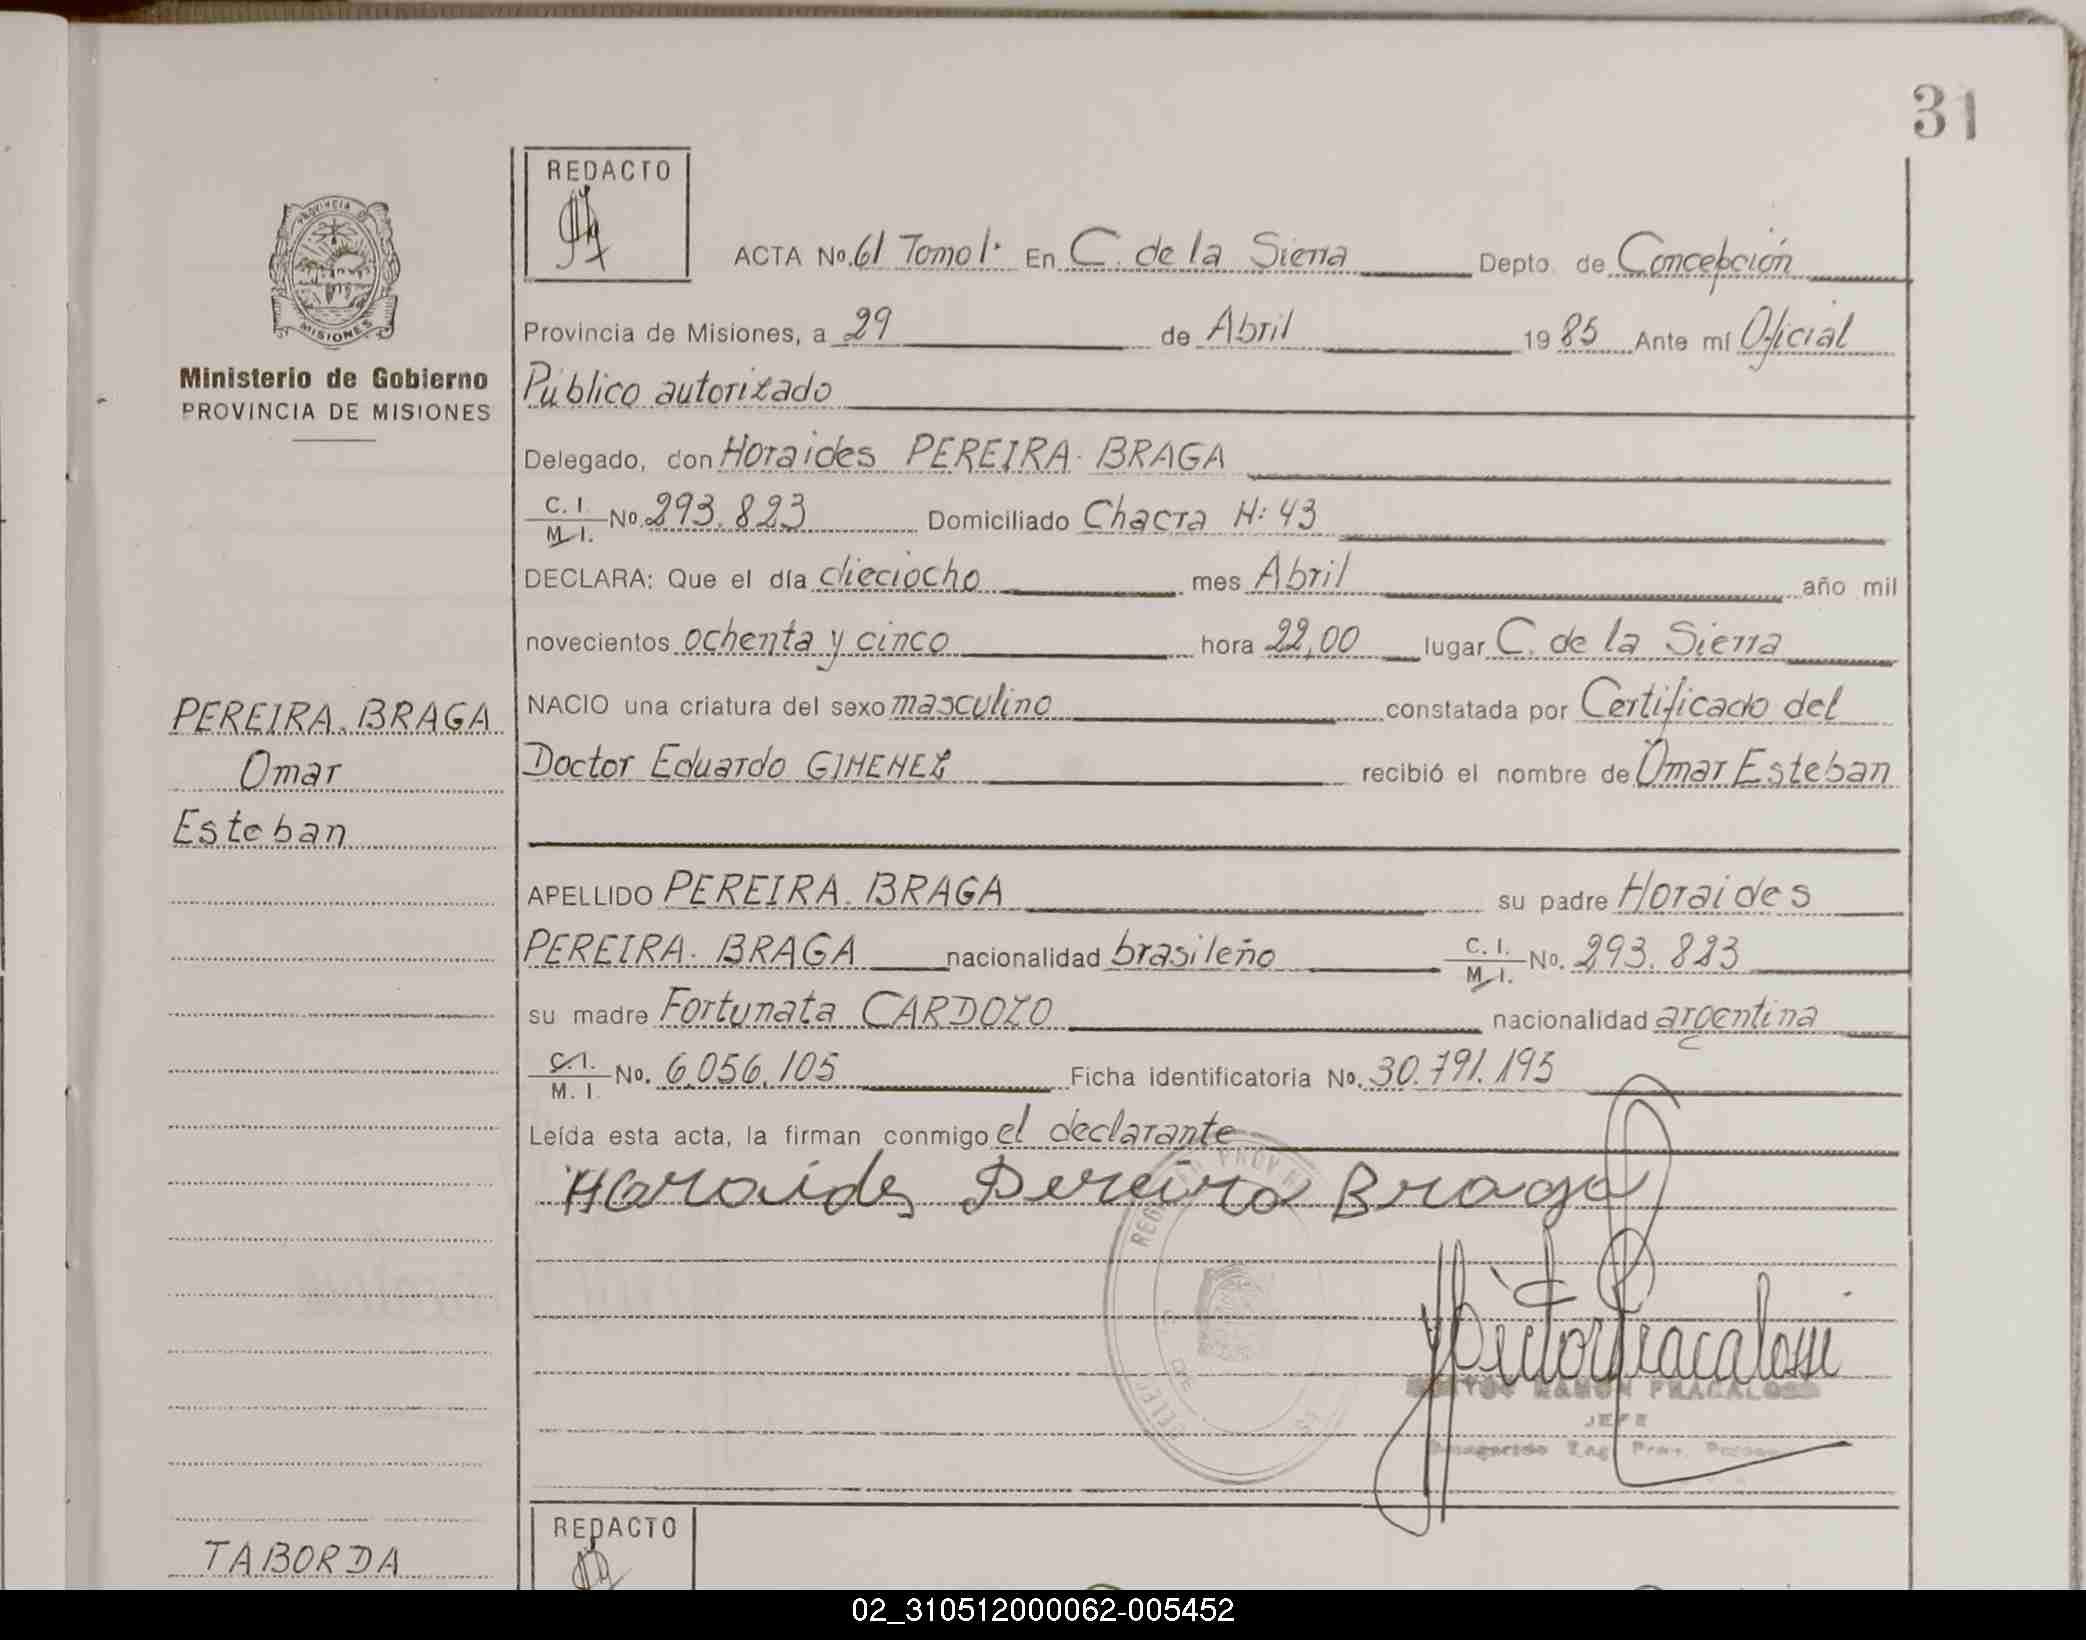 31
REDACTO
ACTA No. 61 Tomo 1· En C. de la Sierra Depto. de Concepción
Provincia de Misiones, a 29 de Abril 1985 Ante mí Oficial
Ministerio de Gobierno
PROVINCIA DE MISIONES
Público autorizado
Delegado, don Horaides PEREIRA. BRAGA
C. I.
M. I. No. 293.823 Domiciliado Chacra N: 43
DECLARA: Que el día dieciocho mes Abril año mil
novecientos ochenta y cinco hora 22,00 lugar C. de la Sierra
PEREIRA. BRAGA
Omar
Esteban
NACIO una criatura del sexo masculino constatada por Certificado del
Doctor Eduardo GIMENEZ recibió el nombre de Omar Esteban
APELLIDO PEREIRA. BRAGA su padre Horaides
PEREIRA. BRAGA nacionalidad brasileño C. I. M. I. No. 293.823
su madre Fortunata CARDOZO nacionalidad argentina
C. I.
M. I. No. 6.056.105 Ficha identificatoria No. 30.791.195
Leída esta acta, la firman conmigo el declarante
Horaides Pereira Braga
Hector Fracalossi
RAMON FRACALOSSI
JEFE
TABORDA
REDACTO
02_310512000062-005452